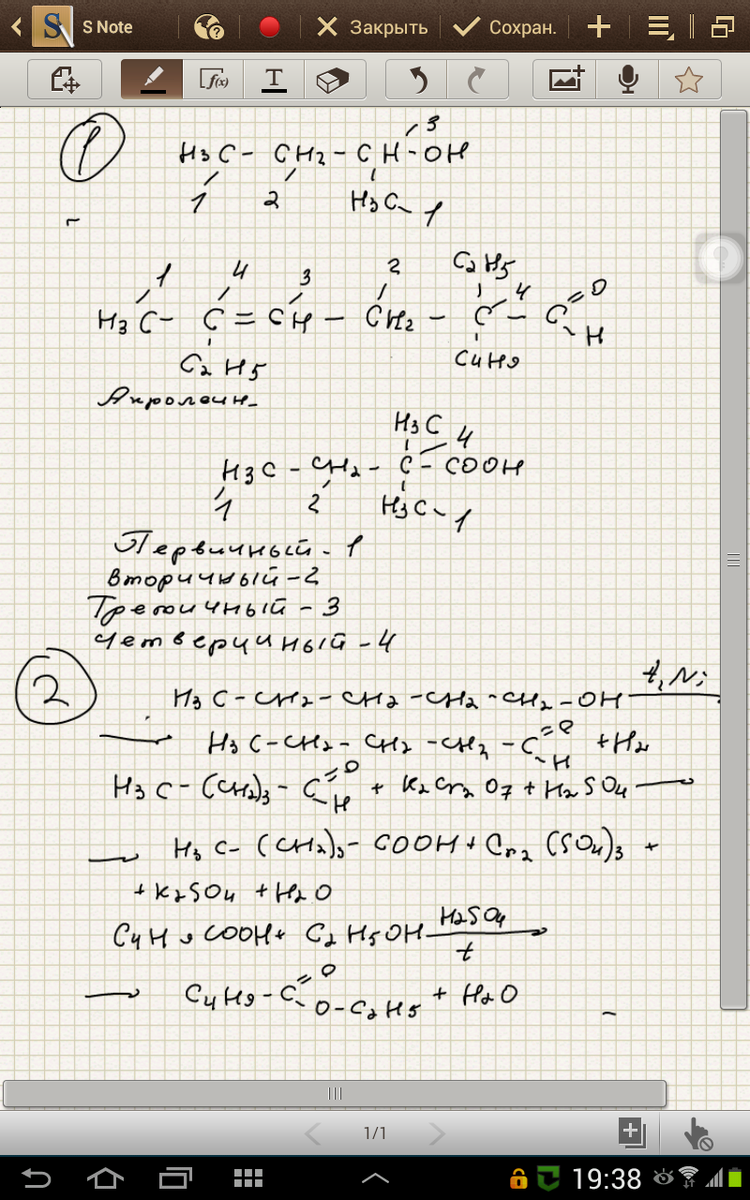 S Note
Закрыть
Сохран.
f(x)
T
1
3
H3C - CH2 - CH - OH
1 2 H3C 1
1 4 3 2 C2H5
H3C - C = CH - CH2 - C 4 - C =O
H
C2H5 C4H9
Акролеин
H3C 4
H3C - CH2 - C - COOH
1 2 H3C 1
Первичный - 1
Вторичный - 2
Третичный - 3
Четверичный - 4
2
H3C - CH2 - CH2 - CH2 - CH2 - OH t, Ni
→ H3C - CH2 - CH2 - CH2 - C =O H + H2
H3C - (CH2)3 - C =O H + K2Cr2O7 + H2SO4 →
→ H3C - (CH2)3 - COOH + Cr2(SO4)3 +
+ K2SO4 + H2O
C4H9COOH + C2H5OH H2SO4 → t
→ C4H9 - C =O O - C2H5 + H2O
1/1
19:38